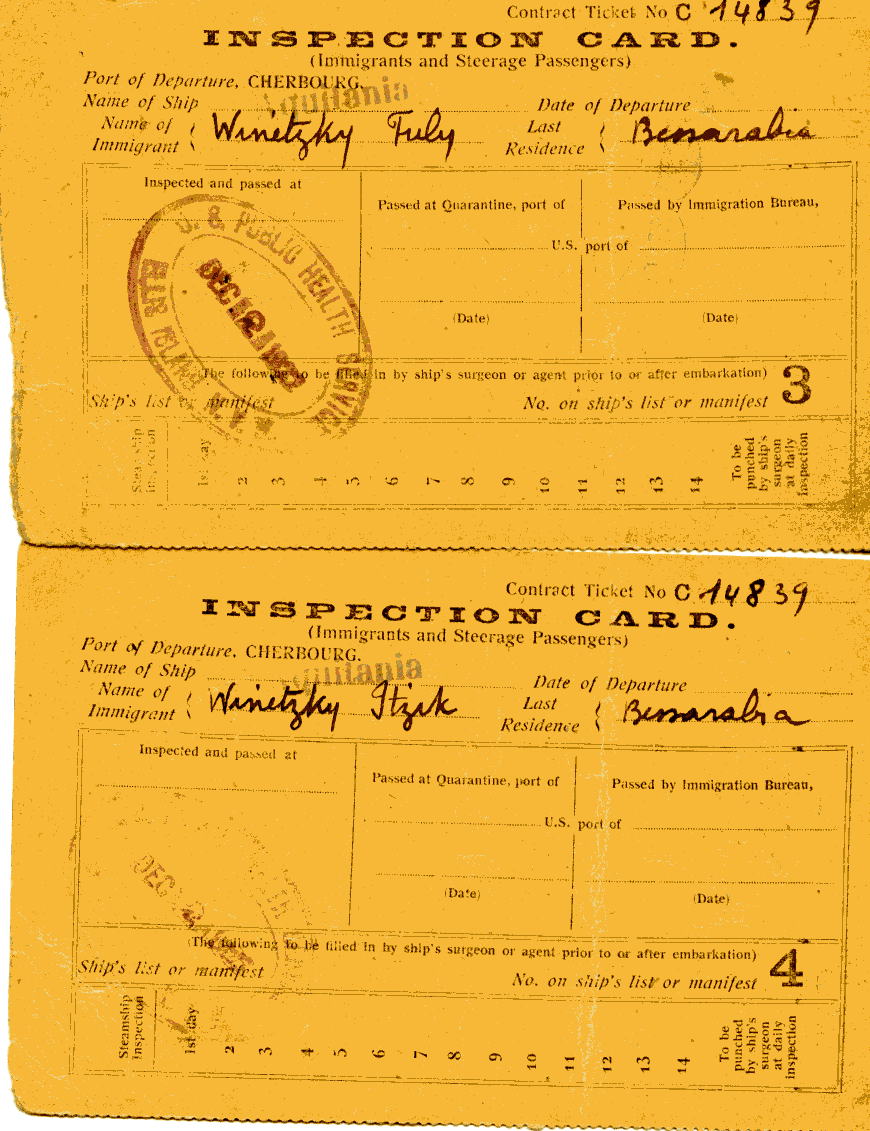 Contract Ticket No C 14839
INSPECTION CARD.
(Immigrants and Steerage Passengers)
Port of Departure, CHERBOURG.
Name of Ship Aquitania Date of Departure
Name of Immigrant Winetzky Fuly Last Residence Bessarabia
Inspected and passed at
Passed at Quarantine, port of
Passed by Immigration Bureau,
U.S. port of
(Date)
(Date)
U. S. PUBLIC HEALTH SERVICE
ELLIS ISLAND N.Y.
DEC
(The following to be filled in by ship's surgeon or agent prior to or after embarkation)
Ship's list or manifest No. on ship's list or manifest 3
Steamship inspection 1st day 2 3 4 5 6 7 8 9 10 11 12 13 14 To be punched by ship's surgeon at daily inspection
Contract Ticket No C 14839
INSPECTION CARD.
(Immigrants and Steerage Passengers)
Port of Departure, CHERBOURG.
Name of Ship Aquitania Date of Departure
Name of Immigrant Winetzky Itzik Last Residence Bessarabia
Inspected and passed at
Passed at Quarantine, port of
Passed by Immigration Bureau,
U.S. port of
(Date)
(Date)
DEC
(The following to be filled in by ship's surgeon or agent prior to or after embarkation)
Ship's list or manifest No. on ship's list or manifest 4
Steamship Inspection 1st day 2 3 4 5 6 7 8 9 10 11 12 13 14 To be punched by ship's surgeon at daily inspection